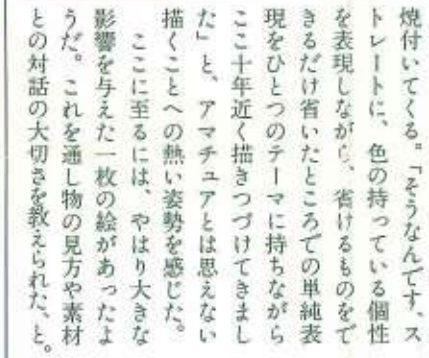 焼付いてくる。「そうなんです、ス
トレートに、色の持っている個性
を表現しながら、省けるものをで
きるだけ省いたところでの単純表
現をひとつのテーマに持ちながら
ここ十年近く描きつづけてきまし
た」と、アマチュアとは思えない
描くことへの熱い姿勢を感じた。
ここに至るには、やはり大きな
影響を与えた一枚の絵があったよ
うだ。これを通し物の見方や素材
との対話の大切さを教えられた、と。